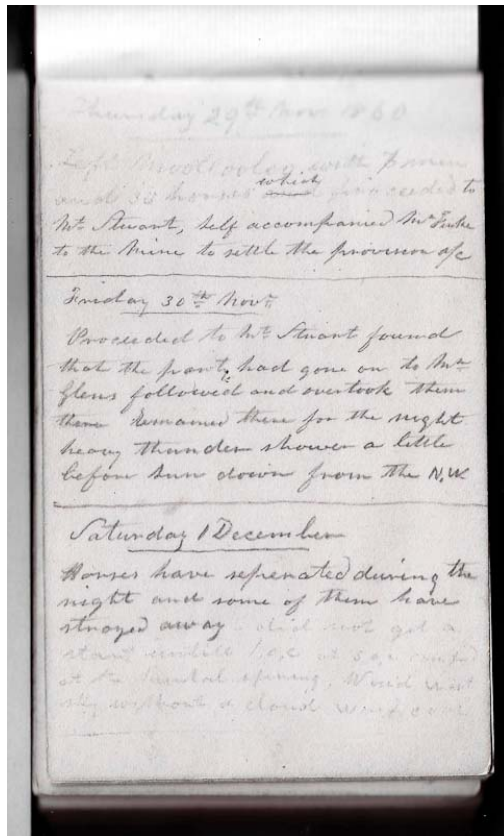 Thursday 29th Nov 1860
Left Moolooloo with 7 men
and 30 horses which proceeded to
Mt Stuart, self accompanied Mr Finke
to the Mine to settle the provision a/c
Friday 30th Novr
Proceeded to Mt Stuart found
that the party had gone on to Mr
Glens followed and overtook them
there Remained there for the night
heavy thunder shower a little
before sun down from the N.W
Saturday 1 December
Horses have seperated during the
night and some of them have
strayed away did not get a
start untill 1.o,c at 5.o,c camped
at the spring, Wind West
sky without a cloud